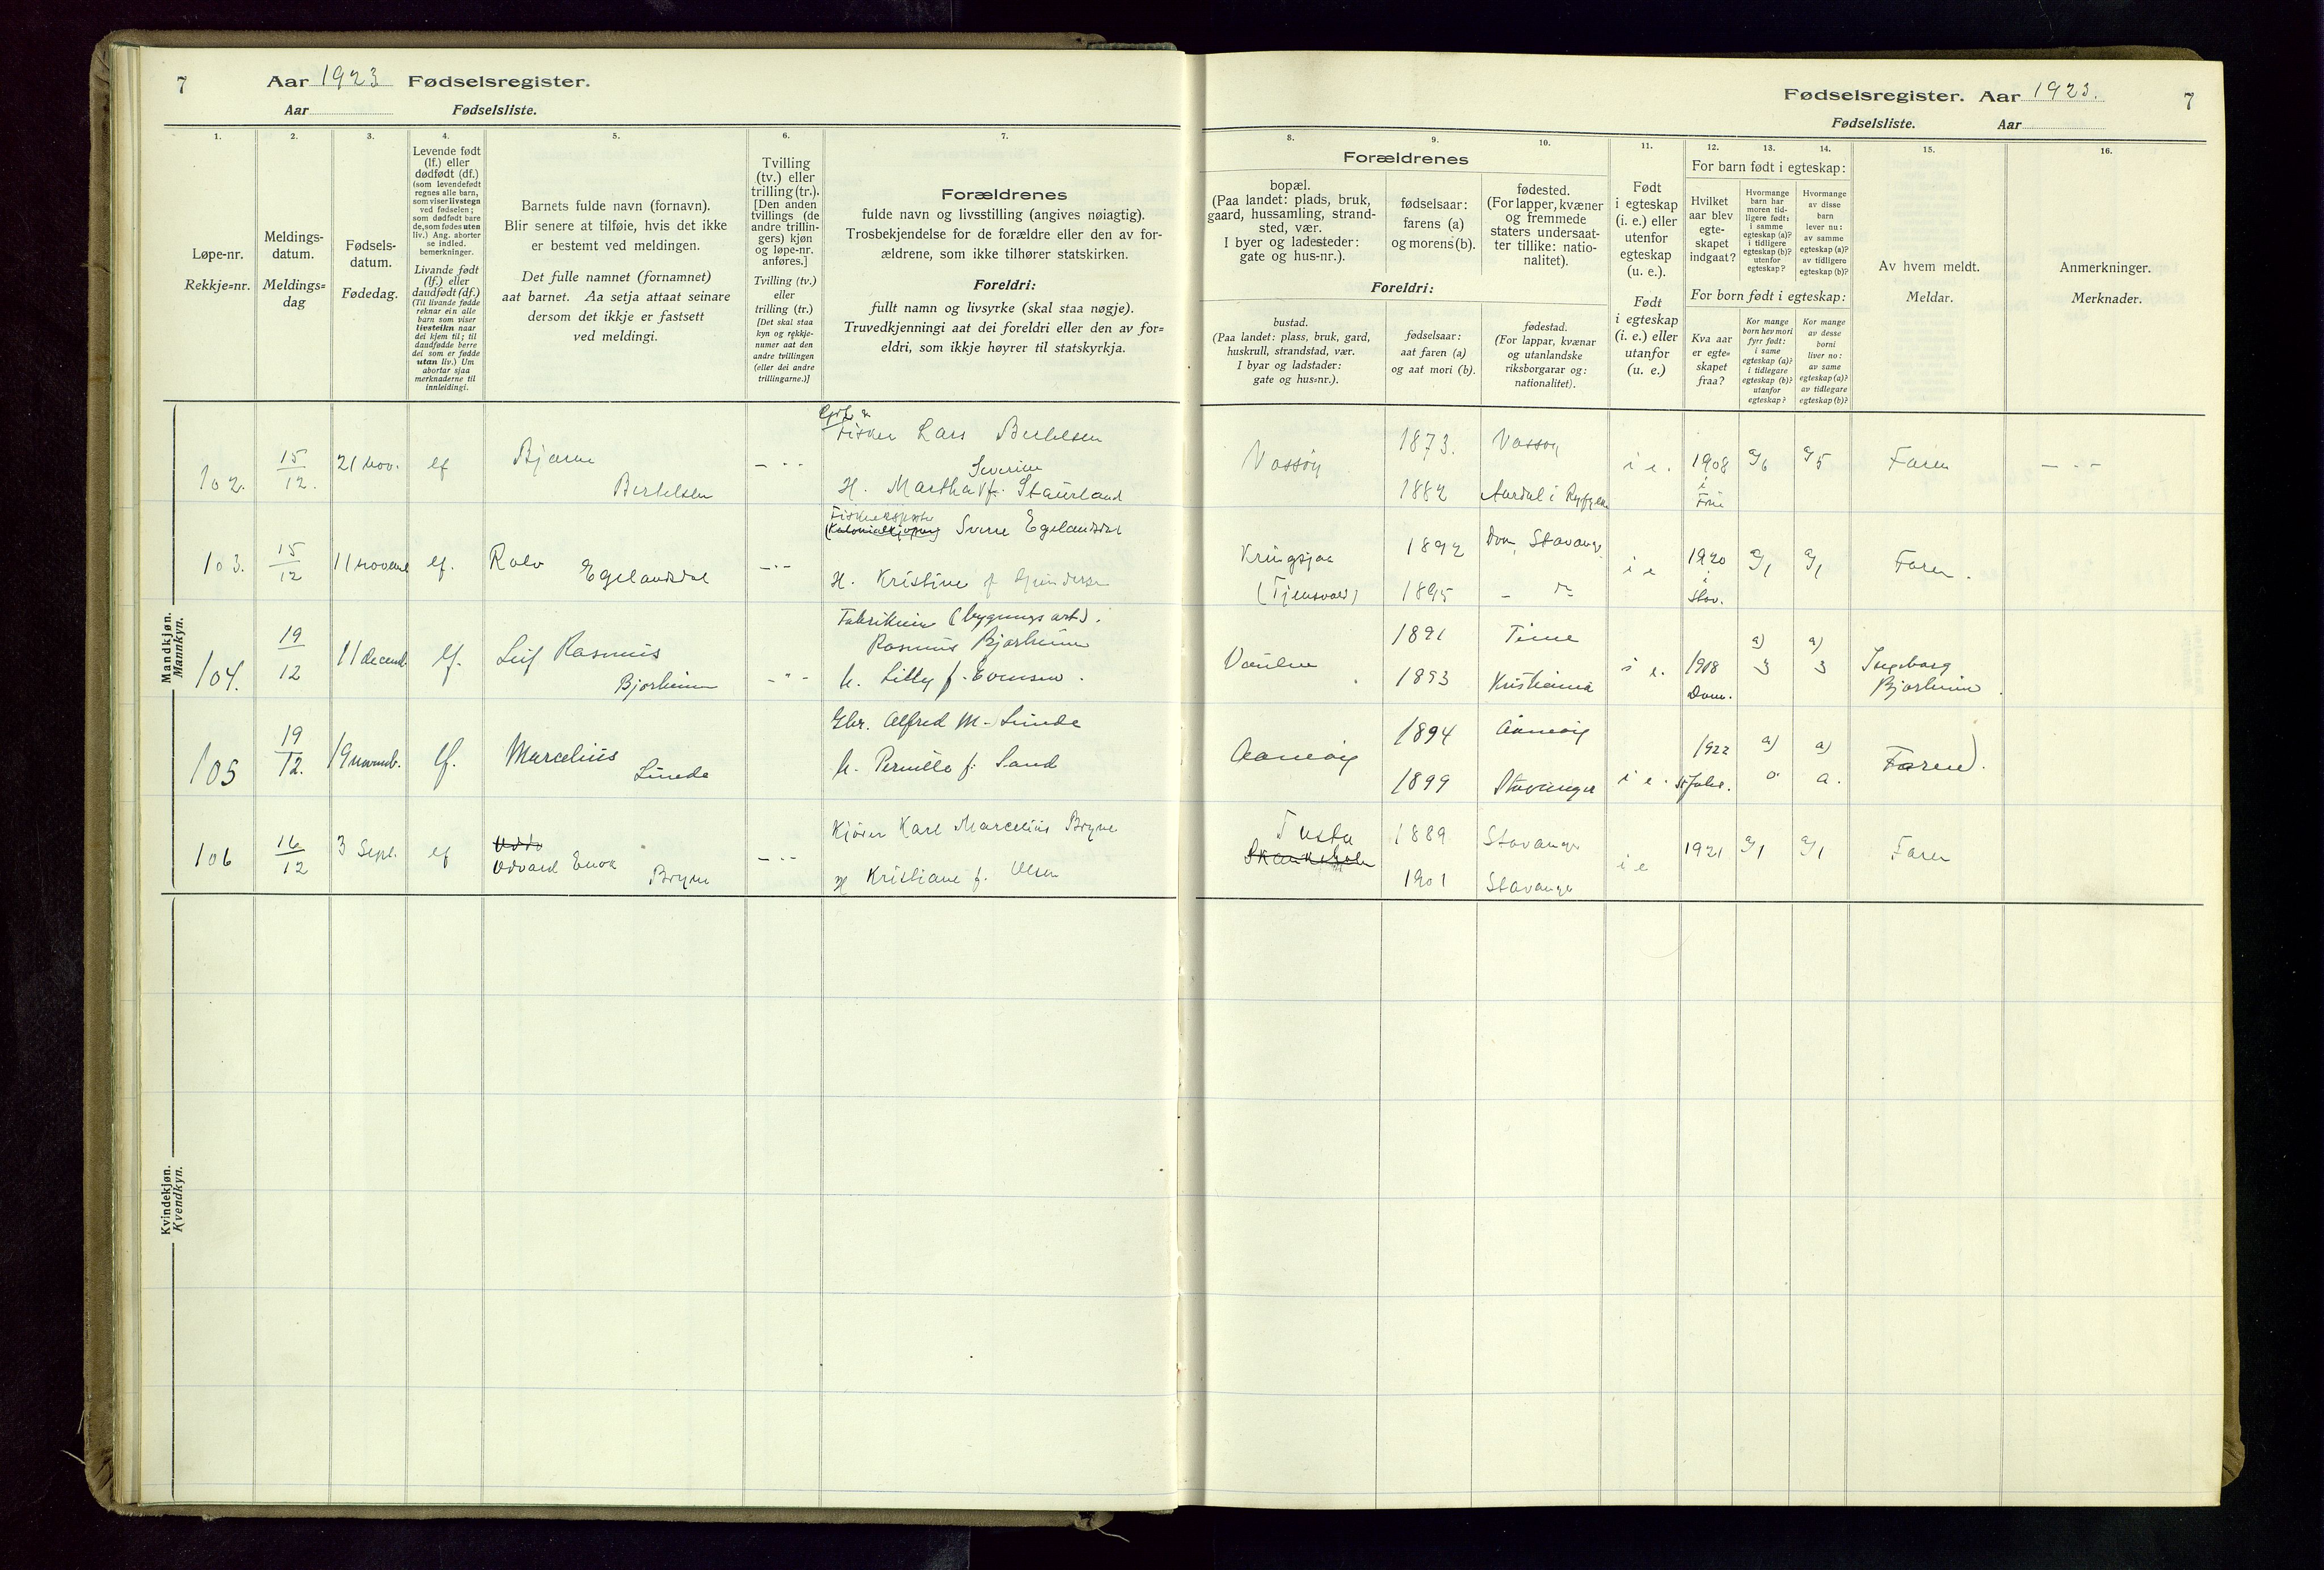 7 Aar 1923 Fødselsregister.
Aar Fødselsliste.
Fødselsregister. Aar 1923. 7
Fødselsliste. Aar
1. 2. 3. 4. 5. 6. 7.
Løpe-nr.
Rekkje=nr.
Meldings-
datum.
Meldings=
dag
Fødsels-
datum.
Fødedag.
Levende født
(lf.) eller
dødfødt (df.)
(som levendefødt
regnes alle barn,
som viser livstegn
ved fødselen;
som dødfødt bare
de, som fødes uten
liv.) Ang. aborter
se indled.
bemerkninger.
Livande født
(lf.) eller
daudfødt (df.)
(Til livande fødde
reknar ein alle
barn som viser
livsteikn naar
dei kjem til; til
daudfødde berre
dei som er fødde
utan liv.) Um
abortar sjaa
merknaderne til
innleidingi.
Barnets fulde navn (fornavn).
Blir senere at tilføie, hvis det ikke
er bestemt ved meldingen.
Det fulle namnet (fornamnet)
aat barnet. Aa setja attaat seinare
dersom det ikkje er fastsett
ved meldingi.
Tvilling
(tv.) eller
trilling (tr.).
[Den anden
tvillings (de
andre trillin-
gers) kjøn
og løpe-nr.
anføres.]
Tvilling (tv.)
eller
trilling (tr.)
[Det skal staa
kyn og rekkje-
numer aat den
andre tvillingen
(eller dei andre
trillingarne.)]
Forældrenes
fulde navn og livsstilling (angives nøiagtig).
Trosbekjendelse for de forældre eller den av for-
ældrene, som ikke tilhører statskirken.
Foreldri:
fullt namn og livsyrke (skal staa nøgje).
Truvedkjenningi aat dei foreldri eller den av for=
eldri, som ikkje høyrer til statskyrkja.
8. 9. 10. 11. 12. 13. 14. 15. 16.
Forældrenes
bopæl.
(Paa landet: plads, bruk,
gaard, hussamling, strand-
sted, vær.
I byer og ladesteder:
gate og hus-nr.).
fødselsaar:
farens (a)
og morens (b).
fødested.
(For lapper, kvæner
og fremmede
staters undersaat-
ter tillike: natio-
nalitet).
Foreldri:
bustad.
(Paa landet: plass, bruk, gard,
huskrull, strandstad, vær.
I byar og ladstader:
gate og hus=nr.).
fødselsaar:
aat faren (a)
og aat mori (b).
fødestad.
(For lappar, kvænar
og utanlandske
riksborgarar og:
nationalitet).
Født
i egteskap
(i. e.) eller
utenfor
egteskap
(u. e.).
Født
i egteskap
(i. e.) eller
utanfor
(u. e.)
For barn født i egteskap:
Hvilket
aar blev
egte-
skapet
indgaat?
Hvormange
barn har
moren tid-
ligere født:
i samme
egteskap (a)?
i tidligere
egteskap (b)?
utenfor
egteskap?
Hvormange
av disse
barn
lever nu:
av samme
egteskap (a)?
av tidligere
egteskap (b)?
For born født i egteskap:
Kva aar
er egte=
skapet
fraa?
Kor mange
born hev mori
fyrr født:
i same
egteskap (a)?
i tidlegare
egteskap (b)?
utanfor
egteskap?
Kor mange
av desse
borni
liver no:
av same
egteskap (a)?
av tidlegare
egteskap (b)?
Av hvem meldt.
Meldar.
Anmerkninger.
Merknader.
Mandkjøn.
Mannkyn.
102. 15/12. 21 nov. lf Bjarne Bertelsen
Fisker Lars Bertelsen
Severine
H. Martha f. Staurland
Vassøy 1873. Vassøy i e. 1908 a/6 a/5 Faren
1882 Aardal i Ryfylke
103. 15/12 11 novemb lf. Rolv Egelandsdal
Sverre Egelandsdal
H. Kristine f Gundersen
Kringsjaa 1892 Dom, Stavanger i e 1920 a/1 a/1 Faren.
(Tjensvold) 1895 i Stav.
104. 19/12 11 decemb. lf. Leif Rasmus Bjorheim
Rasmus Bjorheim
h. Lilly f. Evensen.
Vaulen 1891 Time i e. 1918 a) 3 a) 3 Ingeborg Bjorheim.
1893 Kristiania Dom.
105 19/12. 19 novemb. lf. Marcelius Lunde
Gbr. Alfred M. Lunde
h. Pernille f. Sand
Aamøy 1894 Aamøy i e. 1922 a) o a) Faren.
1899 Stavanger St Joh.
106 16/12 3 Sept. lf Odvard Enok Bryne
Kjører Karl Marcelius Bryne
H Kristiane f. Olsen
Tasta 1889 Stavanger i e 1921 a/1 a/1 Faren
1901 Stavanger
Kvindekjøn.
Kvendkyn.